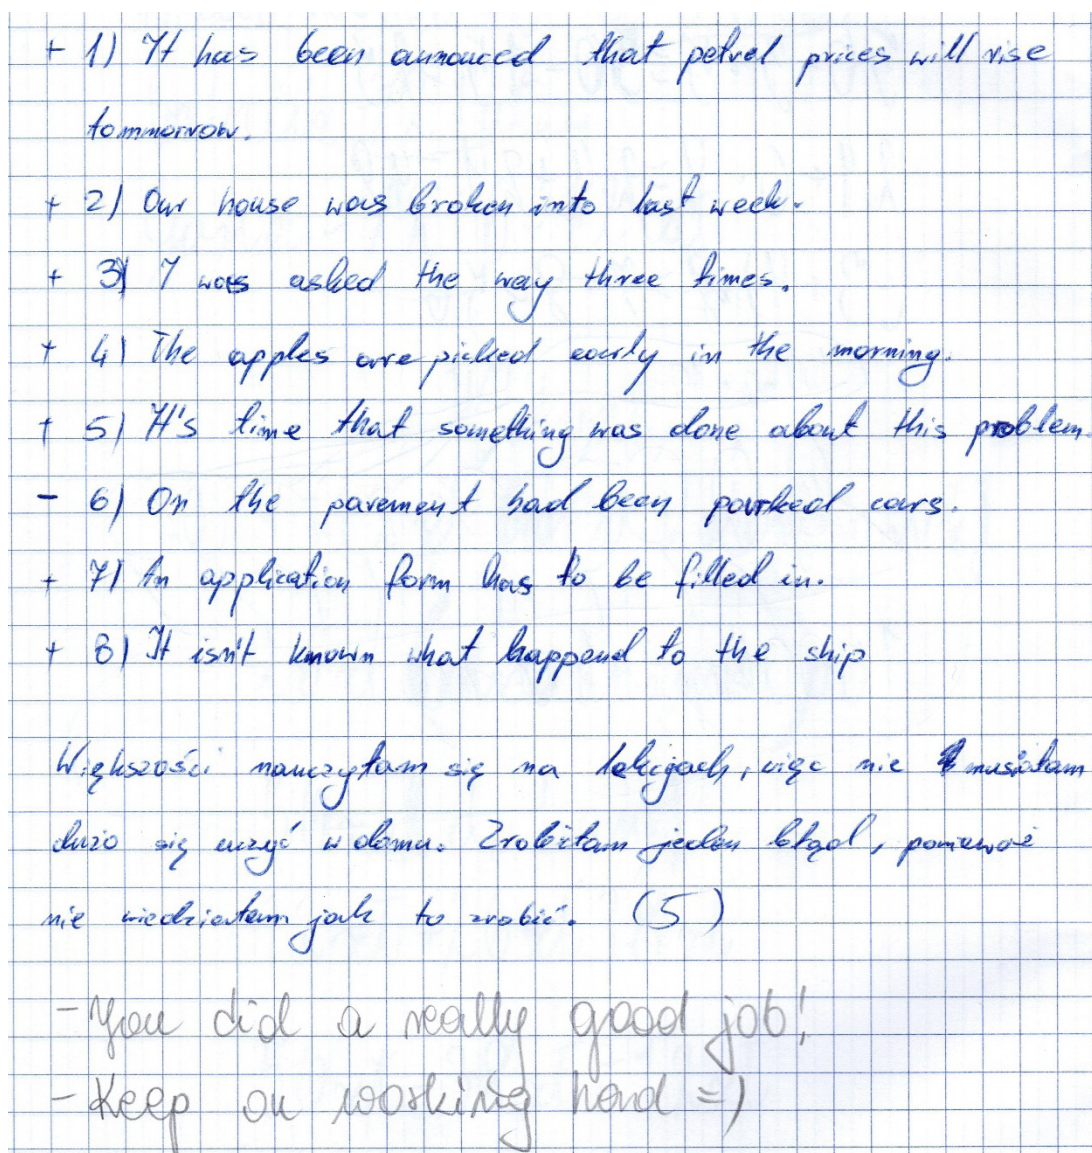 + 1) It has been announced that petrol prices will rise
tommorrow.
+ 2) Our house was broken into last week.
+ 3) I was asked the way three times.
+ 4) The apples are picked early in the morning.
+ 5) It's time that something was done about this problem.
- 6) On the pavement had been parked cars.
+ 7) An application form has to be filled in.
+ 8) It isn't known what happend to the ship
Większości nauczyłam się na lekcjach, więc nie musiałam
dużo się uczyć w domu. Zrobiłam jeden błąd, ponieważ
nie wiedziałam jak to zrobić. (5)
- You did a really good job!
- Keep on working hard =)